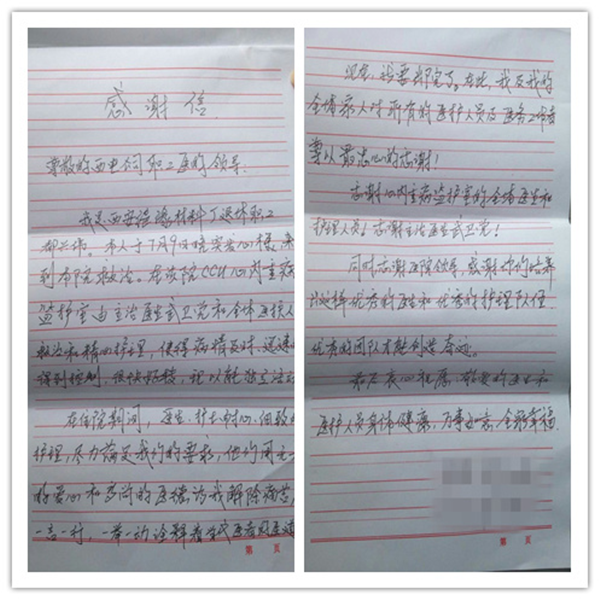 感谢信
尊敬的西电集团职工医院的领导:
我是西安绝缘材料厂退休职工
本人于7月9日晚突发心梗,来
到本院救治。在该院CCU心内重症
监护室由主治医生武卫党和全体医护人
救治和精心护理,使得病情及时、迅速
得到控制,很快好转,现以能独立活
在住院期间,医生、护士耐心、细致
护理,尽力满足我们的要求,他们用
的爱心和高尚的医德为我解除痛苦
一言一行,一举一动诠释着当代医者
现在,我要出院了。在此,我及我的
全体家人对所有的医护人员及医务工作者
等以最忠心的感谢!
感谢心内重症监护室的全体医生和
护理人员!感谢主治医生武卫党!
同时感谢医院领导,感谢你们培养
出这样优秀的医生和优秀的护理队伍
优秀的团队才能创造奇迹。
最后衷心祝愿,敬爱的医生和
医护人员身体健康,万事如意,全家幸福
第 页
第 页